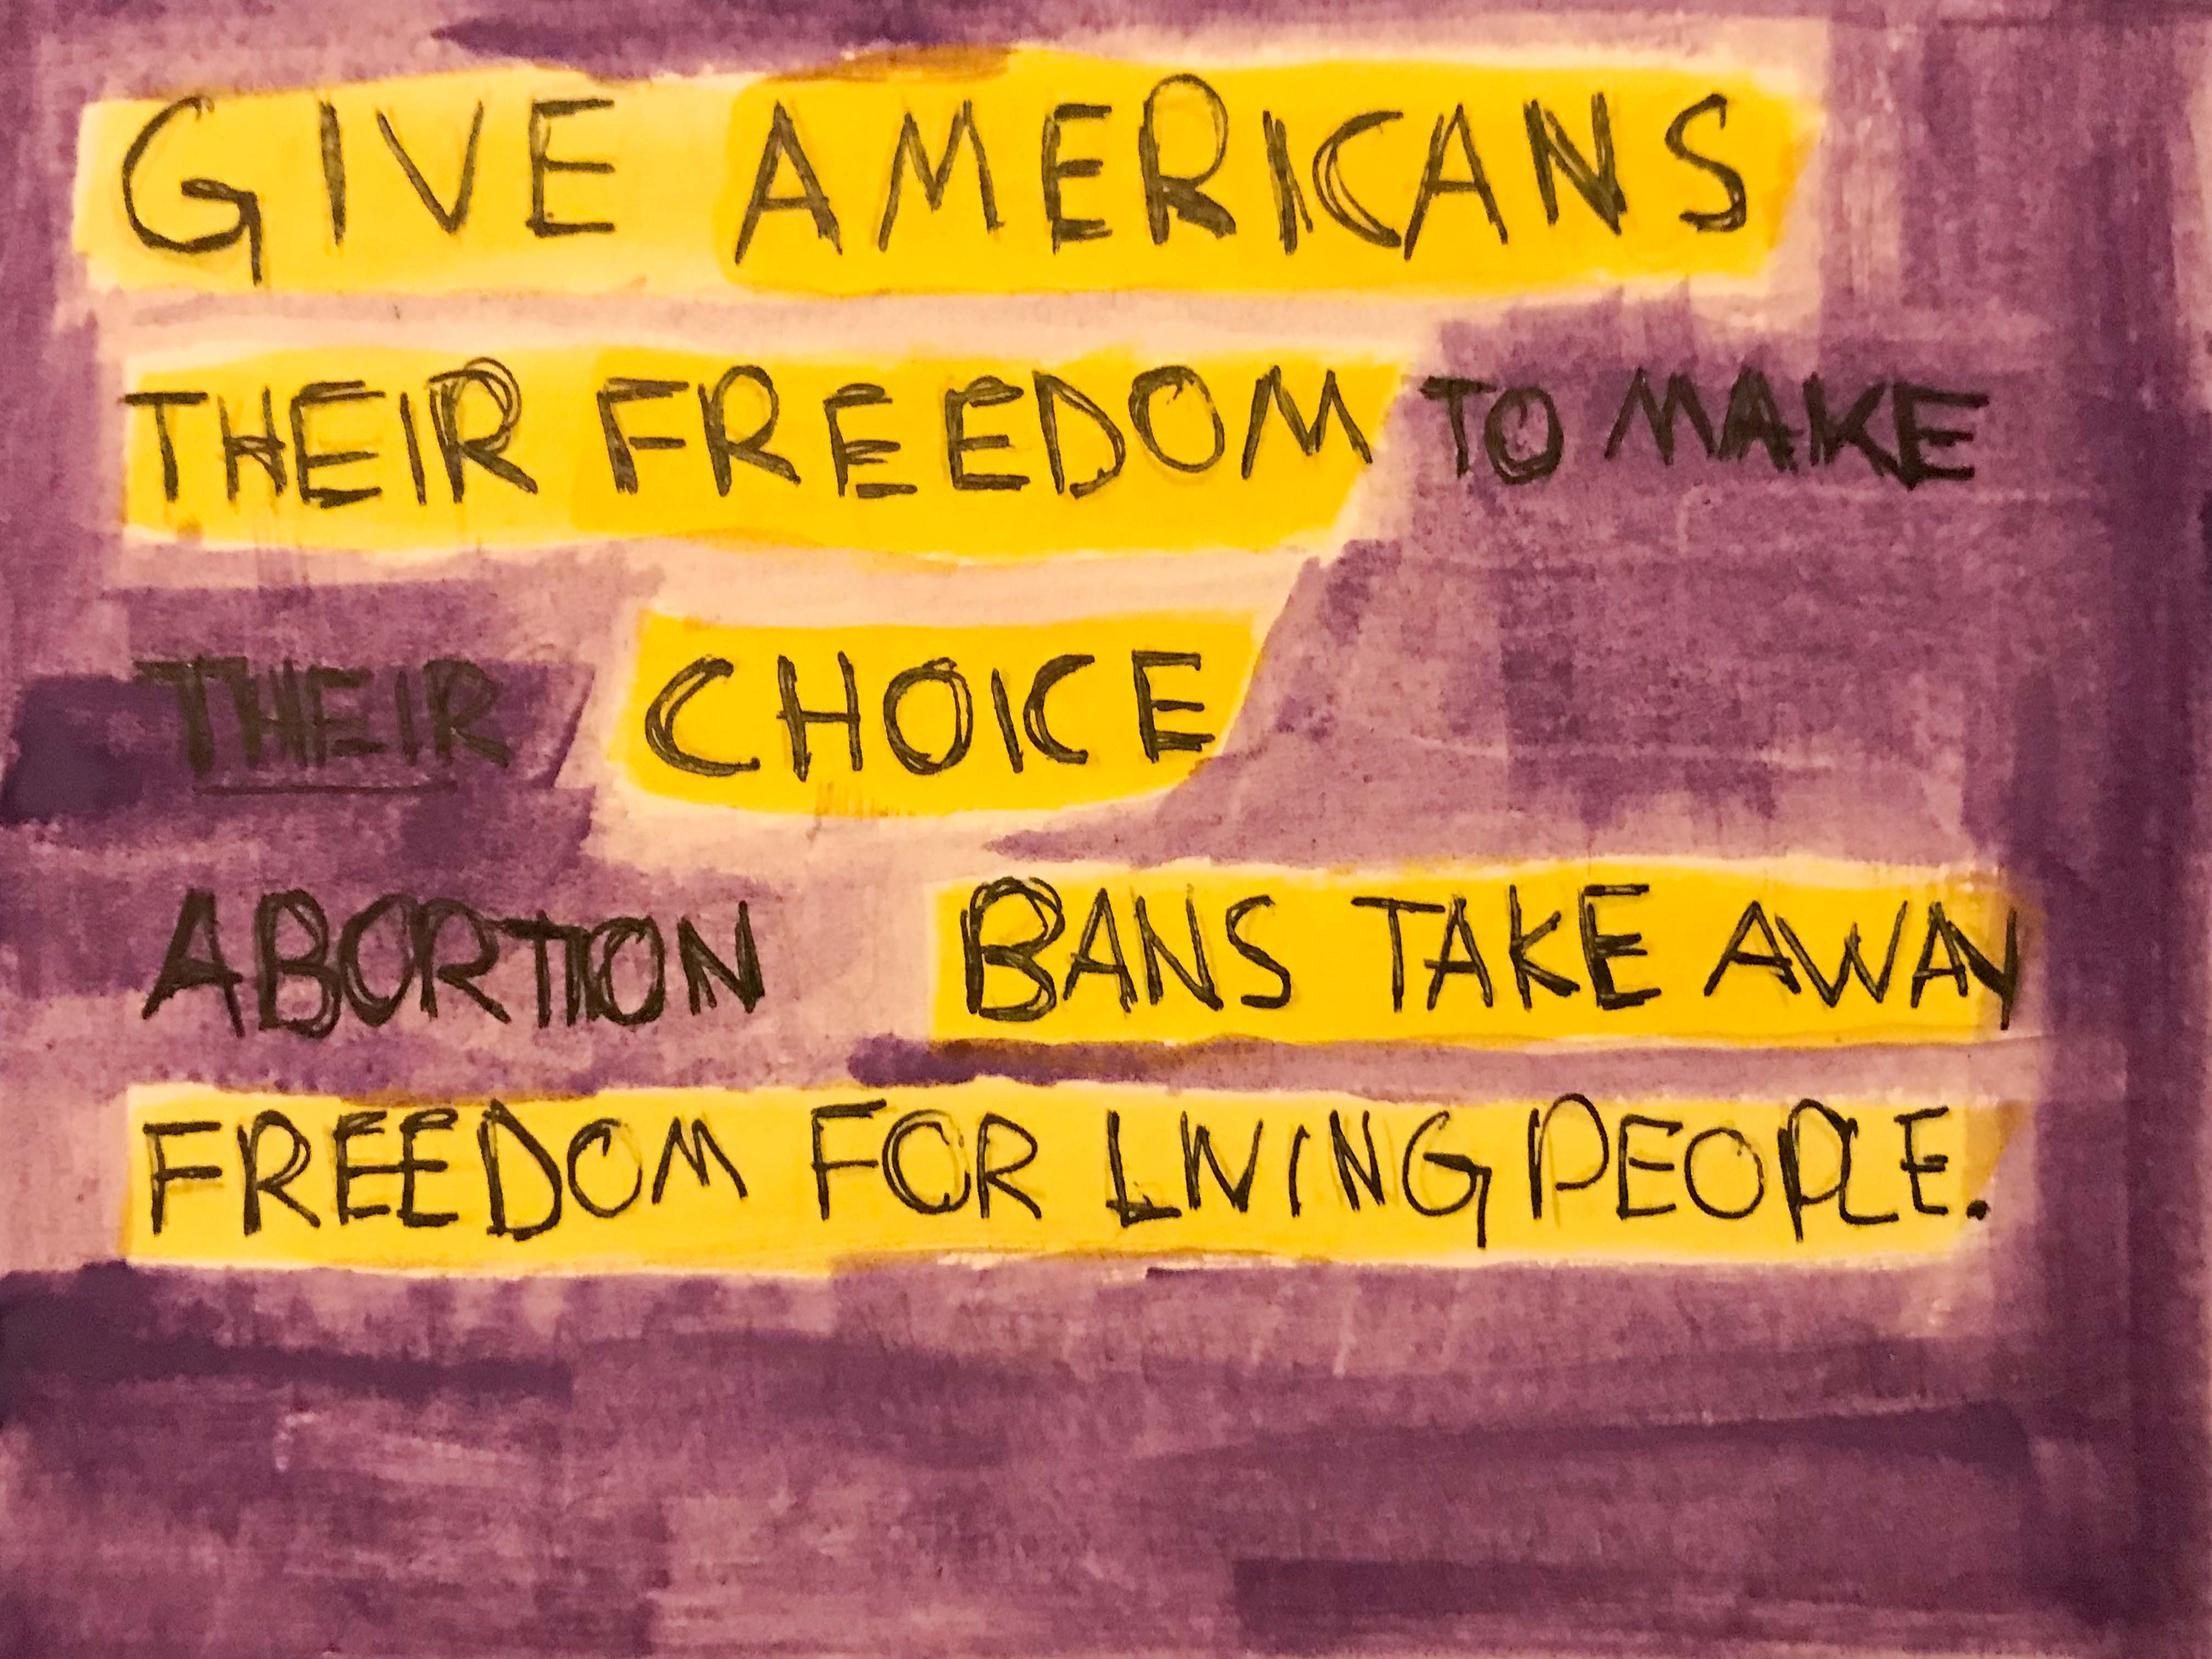 GIVE AMERICANS
THEIR FREEDOM TO MAKE
THEIR CHOICE
ABORTION BANS TAKE AWAY
FREEDOM FOR LIVING PEOPLE.